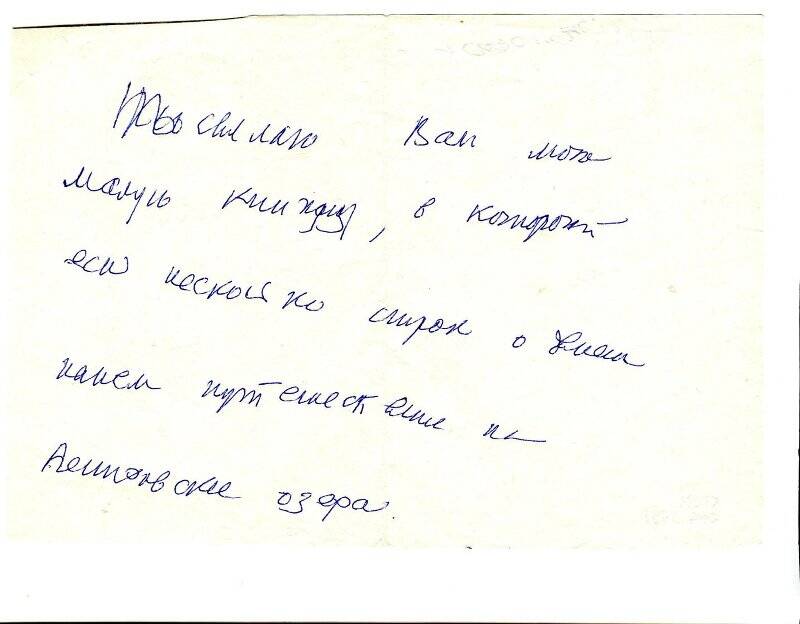 Посылаю Вам мою
малую книжку, в которой
есть несколько строк о
нашем путешествии на
озера.